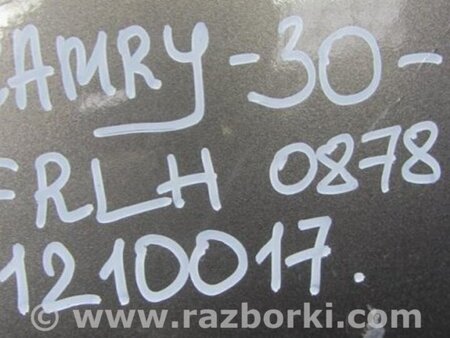 CAMRY-30-
FRLH 0878
1210017.
© www.razborki.com